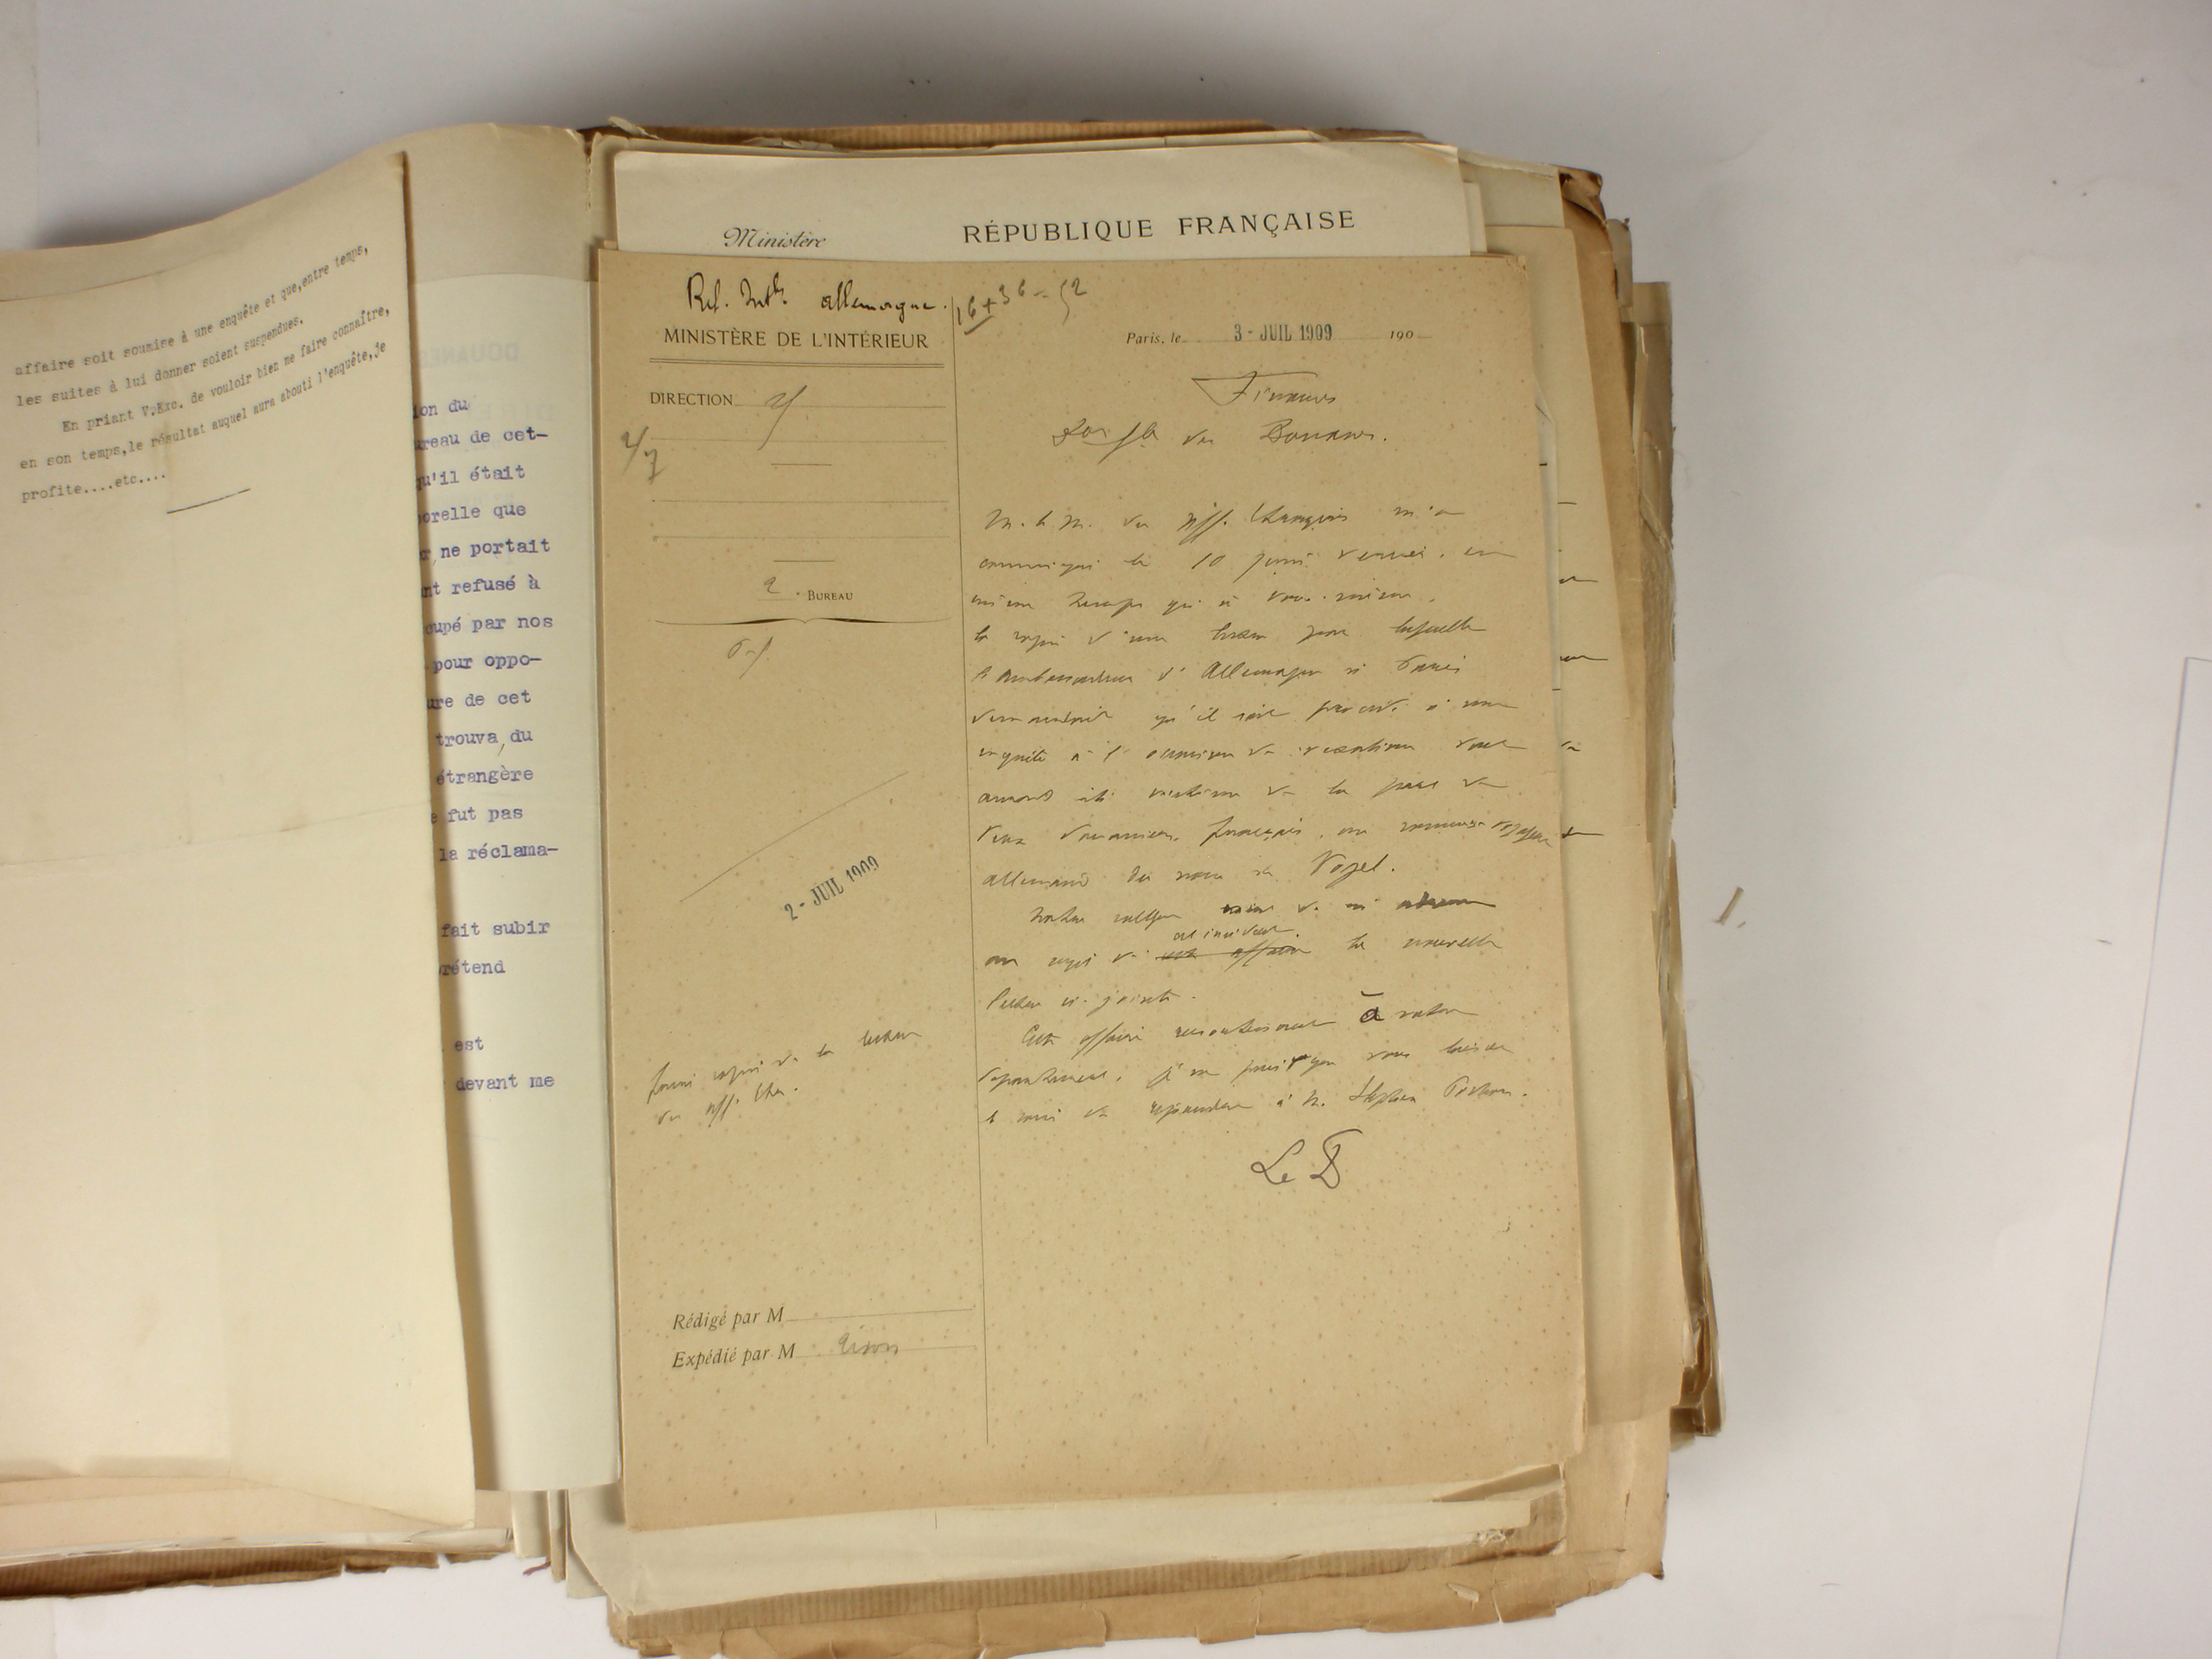 affaire soit soumise à une enquête et que,entre temps,
les suites à lui donner soient suspendues.
En priant V.Exc. de vouloir bien me faire connaître,
en son temps,le résultat auquel aura abouti l'enquête,je
profite....etc....
ion du
ureau de cet-
qu'il était
orelle que
ne portait
nt refusé à
cupé par nos
pour oppo-
ure de cet
trouva du
étrangère
fut pas
la réclama-
fait subir
rétend
est
devant me
Ministère
RÉPUBLIQUE FRANÇAISE
allemagne.
16+36=52
MINISTÈRE DE L'INTÉRIEUR
DIRECTION
2e BUREAU
2 - JUIL 1909
fourni copie de la lettre
du aff. Etr.
Rédigé par M
Expédié par M
Paris, le 3 - JUIL 1909 190
Finances
des Douanes.
M. le M. des aff. Etrangères m'a
communiqué le 10 juin dernier, en
même temps qu'à vous-même,
la copie d'une lettre par laquelle
l'ambassadeur d'Allemagne à Paris
demandait qu'il soit procédé à une
enquête à l'occasion de vexations dont
aurait été victime de la part de
deux douaniers français, un
allemand du nom de Vogel.
Notre collègue vient de m'adresser
au sujet de cette affaire cet incident la nouvelle
lettre ci-jointe.
Cette affaire ressortissant à votre
département, je ne puis que vous laisser
le soin de répondre à M. Stephen Pichon.
Le D